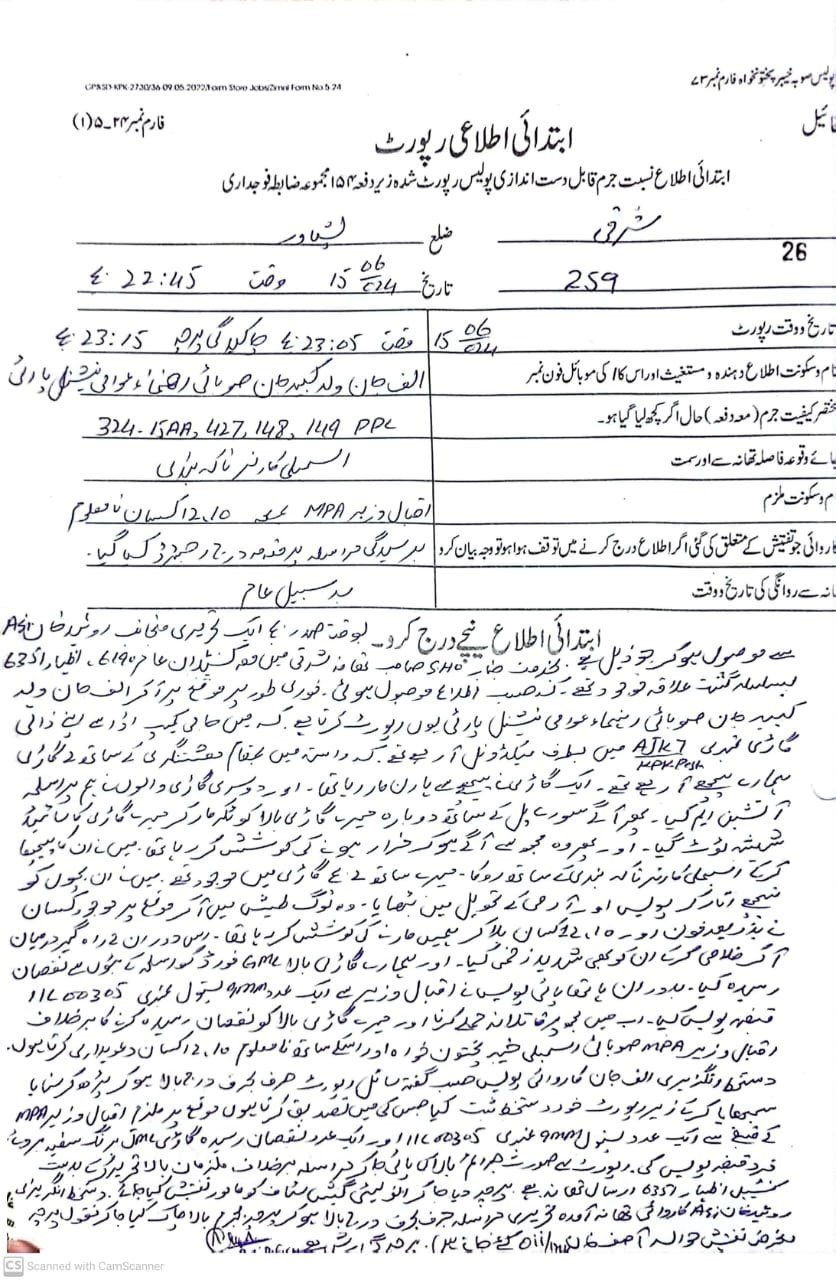 پولیس صوبہ خیبر پختونخواہ فارم نمبر ۷۳
GP&SD-KPK-2730/36-09.05.2022/Form Store Jobs/Zimni Form No.5.24
فائیل
فارم نمبر ۲۴-۵(۱)
ابتدائی اطلاعی رپورٹ
ابتدائی اطلاع نسبت جرم قابل دست اندازی پولیس رپورٹ شدہ زیر دفعہ ۱۵۴ مجموعہ ضابطہ فوجداری
شرقی ضلع پشاور
26
259 تاریخ 15 06/024 وقت 22:45
تاریخ و وقت رپورٹ 15 06/024 وقت 23:05 چاکیدگی پرچہ 23:15
نام و سکونت اطلاع دھندہ و مستغیث اور اس کا / کی موبائل فون نمبر الف جان ولد صوبائی رھنماء عوامی نیشنل پارٹی
مختصر کیفیت جرم (معہ دفعہ) حال اگر کچھ لیا گیا ہو۔ 324-15AA, 427, 148, 149 PPC
جائے وقوعہ فاصلہ تھانہ سے اور سمت اسمبلی کارنر ناکہ بندی
نام و سکونت ملزم اقبال وزیر MPA معہ 12،10 کسان نامعلوم
کاروائی جو تفتیش کے متعلق کی گئی اگر اطلاع درج کرنے میں توقف ہوا ہو تو وجہ بیان کرو برسیدگی مراسلہ پر مقدمہ درج رجسٹرڈ کیا گیا۔
تھانہ سے روانگی کی تاریخ و وقت بد سبیل عام
ابتدائی اطلاع نیچے درج کرو۔ بوقت صدر ایک تحریری منجانب روشید خان ASI
سے موصول ہوکر جو ذیل ہے۔ بخدمت جناب SHO صاحب تھانہ شرقی میں معہ کنسٹیبلان عامر 6190، اظہار 6351
بسلسلہ گشت علاقہ موجود تھے۔ کہ حسب اطلاع موصول ہوئی۔ فوری طور پر موقع پر آکر الف جان ولد
جان صوبائی رہنماء عوامی نیشنل پارٹی یوں رپورٹ کرتا ہے کہ میں حاجی کیمپ اڈا سے اپنے ذاتی
گاڑی نمبری میں بطرف میکڈونل آ رہے تھے کہ راستہ میں بمقام ہشتنگری کے ساتھ 2 گاڑی
KPK Pesh
ہمارے پیچھے آ رہے تھے۔ ایک گاڑی نے پیچھے سے ہارن مار رہا تھا۔ اور دوسری گاڑی والوں نے ہم پر اسلحہ
آتشیں کیا۔ پھر آگے سورے پل کے ساتھ دوبارہ میرے گاڑی بالا کو ٹکر مار کر میرے گاڑی کا سائیڈ
شیشہ ٹوٹ گیا۔ اور پھر وہ مجھ سے آگے ہوکر فرار ہونے کی کوشش کر رہا تھا۔ میں نے ان کا پیچھا
کرکے اسمبلی کارنر ناکہ بندی کے ساتھ روکا۔ میرے ساتھ گاڑی میں موجود تھے۔ میں نے ان بچوں کو
نیچے اتار کر پولیس اور آرمی کے تحویل میں بٹھایا۔ وہ لوگ طیش میں آکر موقع پر موجود کسان
نے بذریعہ فون اور 12،10 کسان بلا کر ہمیں مارنے کی کوشش کر رہا تھا۔ اس دوران 2 راہ گیر درمیان
آکر خلاصی کرکے ان کو بھی شدید زخمی کیا۔ اور ہمارے گاڑی بالا GMC فورڈ کو اسلحہ کے بٹوں سے نقصان
رسیدہ کیا۔ بدوران ہاتھا پائی پولیس نے اقبال وزیر سے ایک عدد 9MM پستول نمبری 11L00305
قبضہ پولیس کیا۔ اب میں مجھ پر قاتلانہ حملے کرنا اور میرے گاڑی بالا کو نقصان رسیدہ کرنے کا برخلاف
اقبال وزیر MPA صوبائی اسمبلی خیبر پختون خواہ اور اسکے ساتھ نامعلوم 12،10 کسان دعویداری کرتا ہوں۔
دستخط انگریزی الف جان کاروائی پولیس حسب گفتہ سائل رپورٹ حرف بحرف درج بالا ہو کر پڑھ کر سنایا
سمجھایا کرکے زیر رپورٹ خود دستخط ثبت کیا جس کی میں تصدیق کرتا ہوں موقع پر ملزم اقبال وزیر MPA
کے قبضے سے ایک عدد پستول 9MM نمبری 11L00305 اور ایک عدد نقصان رسیدہ گاڑی GMC برنگ سفید
فرد قبضہ پولیس کی۔ رپورٹ سے صورت جرائم بالا کی پائی جا کر مراسلہ برخلاف ملزمان بالا تحریر کرکے بدست
کنسٹیبل اظہار 6351 ارسال تھانہ ہے۔ پرچہ دیا جا کر انوسٹی گیشن سٹاف کو مامور تفتیش کیا جائے۔ دستخط انگریزی
روشید خان ASI کاروائی تھانہ آمدہ تحریری مراسلہ حرف بحرف درج بالا ہو کر پرچہ بجرم بالا چاک کیا جا کر نقول پرچہ
بغرض تفتیش حوالہ آصف خان کئے جاتے ہیں۔ پرچہ گزارش ہے
CS Scanned with CamScanner